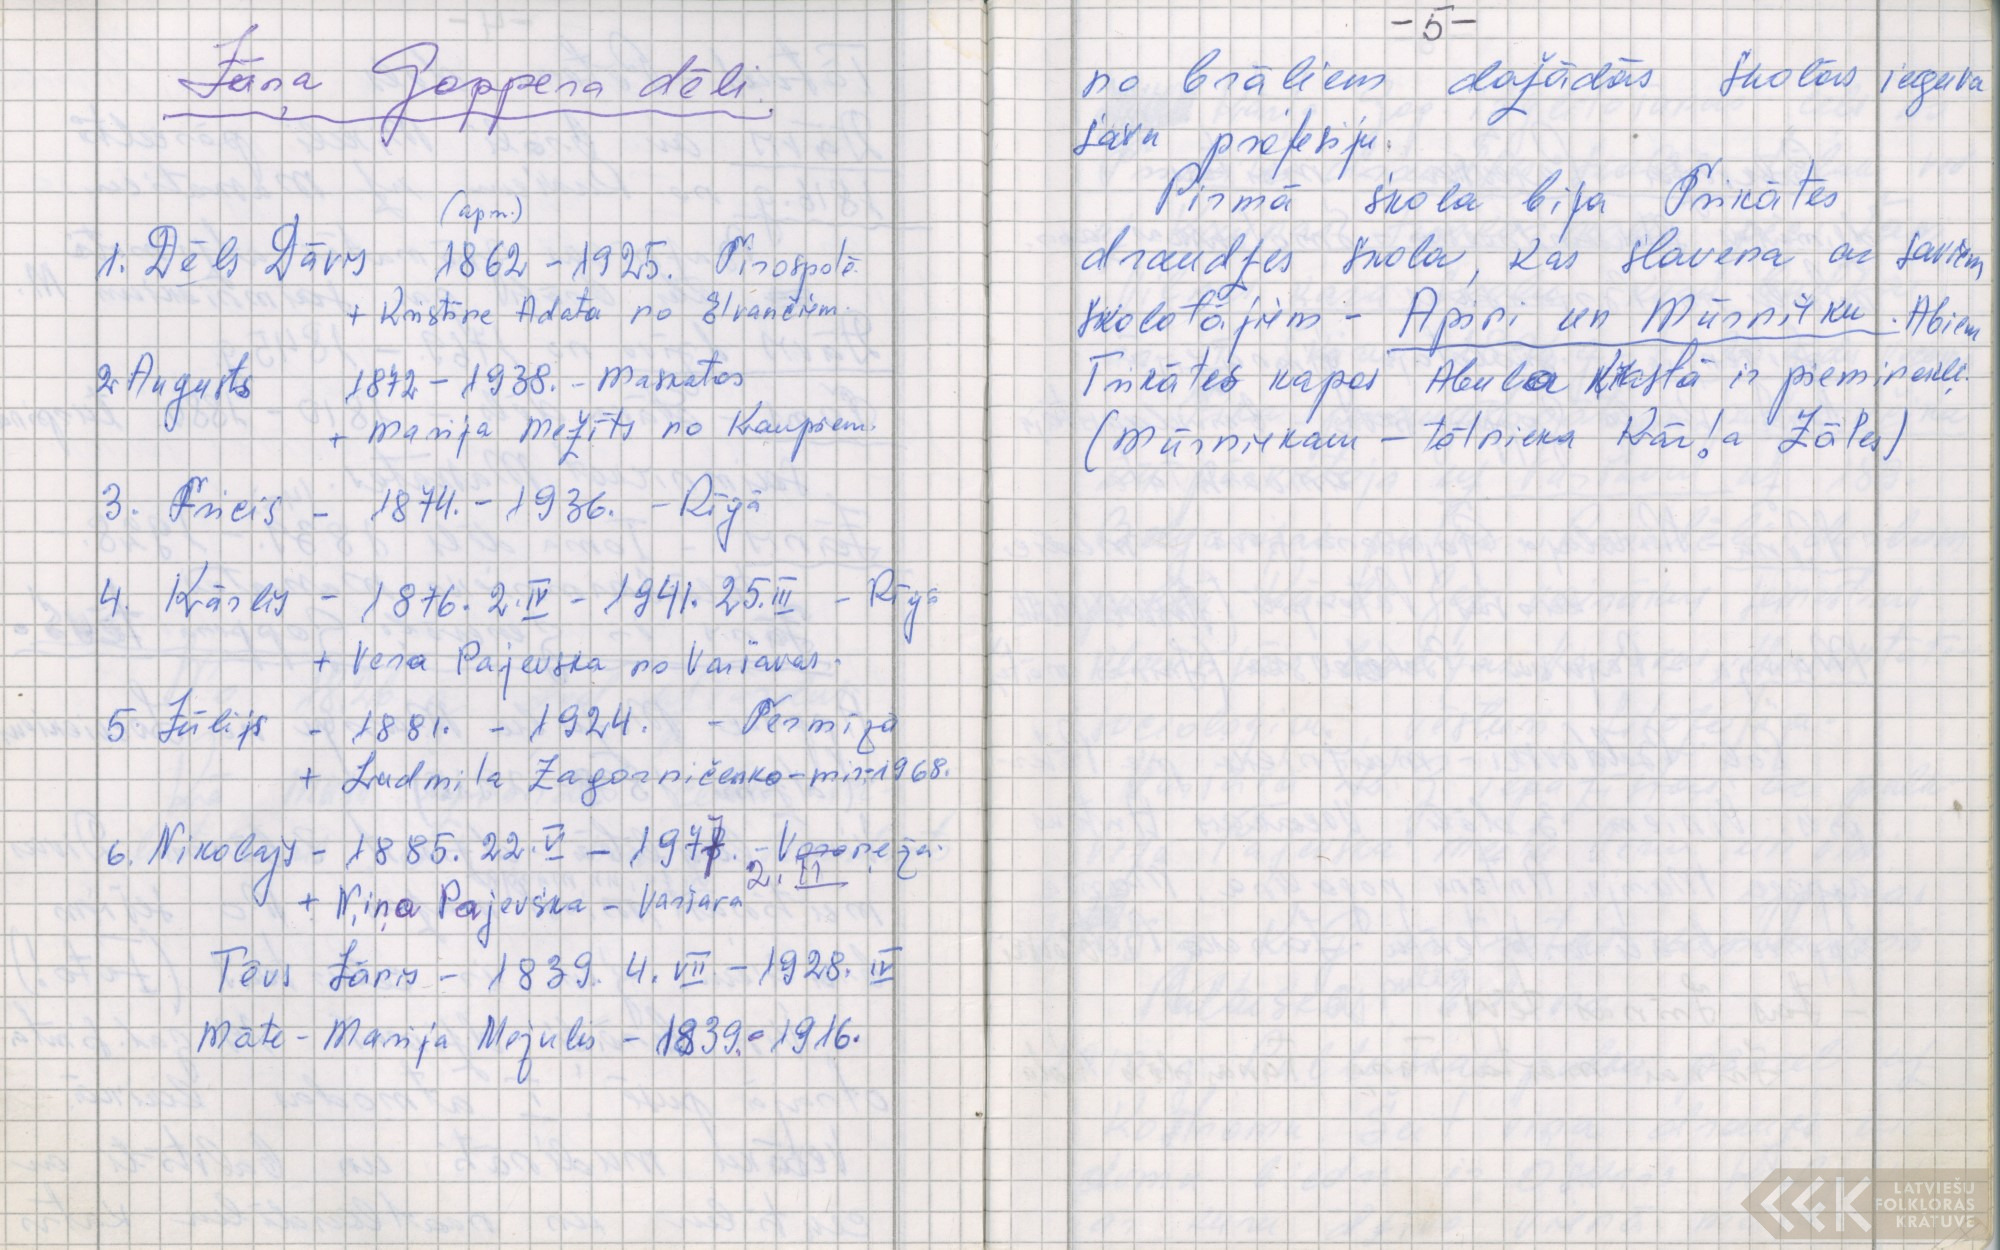 Jāņa Goppera dēli.
(apm.)
1. Dēls Dāvis 1862 - 1925. Pirospolē.
+ Kristīne Adata no Elvančiem.
2. Augusts 1872 - 1938. - Maskatos
+ Marija Mežīts no Kaupiem.
3. Fricis - 1874. - 1936. - Rīgā
4. Kārlis - 1876. 2. IV - 1941. 25. III - Rīgā
+ Vera Pajevska no Varšavas.
5 Jūlijs - 1881. - 1924. - Permijā
+ Ludmila Zagorničenko - mir. 1968.
6. Nikolajs - 1885. 22. V - 1977. - Voroņežā.
2. II
+ Ņina Pajevska - Varšava
Tēvs Jānis - 1839. 4. VII - 1928. IV
Māte - Marija Mežulis - 1839. - 1916.
- 5 -
no brāļiem dažādās skolās ieguva
savu profesiju.
Pirmā skola bija Trikātes
draudzes skola, kas slavena ar saviem
skolotājiem - Apini un Mūrnieku. Abiem
Trikātes kapos Abula krastā ir pieminekļi.
(Mūrniekam - tēlnieka Kārļa Zāles)
LATVIEŠU
FOLKLORAS
KRĀTUVE